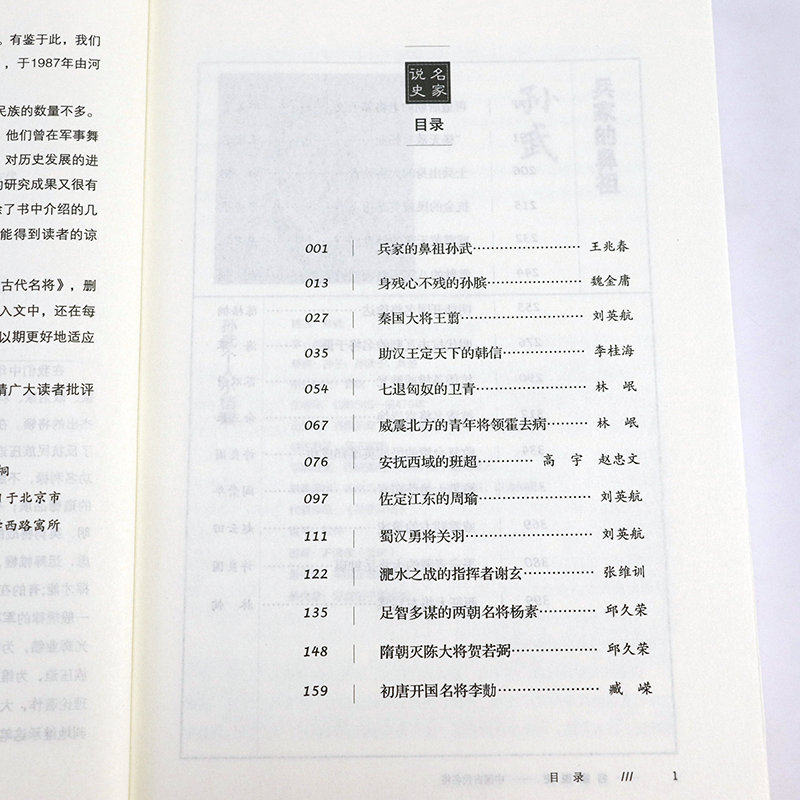 。有鉴于此，我们
，于1987年由河
民族的数量不多。
他们曾在军事舞
对历史发展的进
的研究成果又很有
除了书中介绍的几
能得到读者的谅
古代名将》，删
入文中，还在每
以期更好地适应
请广大读者批评
于北京市
西路寓所
名家
说史
目录
001 兵家的鼻祖孙武 王兆春
013 身残心不残的孙膑 魏金庸
027 秦国大将王翦 刘英航
035 助汉王定天下的韩信 李桂海
054 七退匈奴的卫青 林岷
067 威震北方的青年将领霍去病 林岷
076 安抚西域的班超 高宇 赵忠文
097 佐定江东的周瑜 刘英航
111 蜀汉勇将关羽 刘英航
122 淝水之战的指挥者谢玄 张维训
135 足智多谋的两朝名将杨素 邱久荣
148 隋朝灭陈大将贺若弼 邱久荣
159 初唐开国名将李勣 臧嵘
目录 /// 1